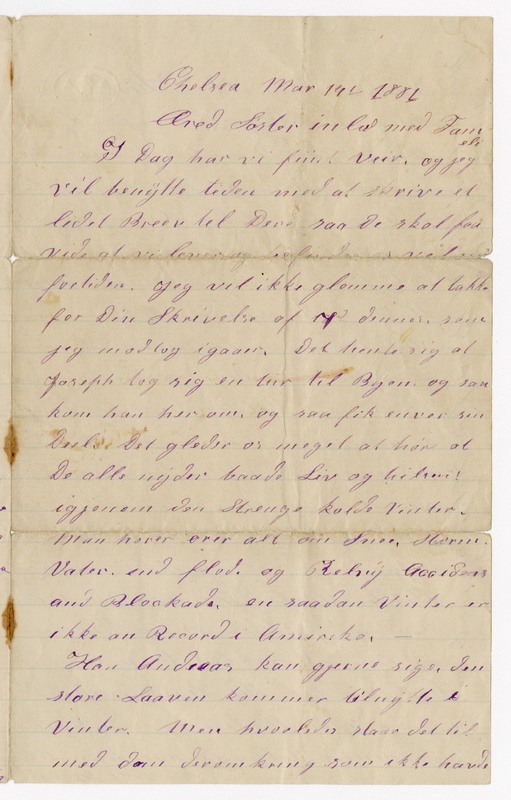 Chelsea Mar 14t 1881
Æred Søster in lo med Fam-
eli
I Dag har vi fiint Veir, og jeg
vil benytte tiden med at skrive et
lidet Breev til Dere saa De skal faa
vide at vi lever og
fortiden. jeg vil ikke glomme at takke
for Din Skrivelse af 7d dennes, som
jeg modtog igaar. Det hente sig at
Joseph tog sig en tur til Byen og saa
kom han her om, og saa fik enver sin
Deel. Det gleder os meget at høre at
De alle nyder baade Liv og helsen
igjenom den Strenge kolde Vinter.
Man hører over alt om Snee, Storm,
Vater, and flod, og Relvy Accidens
and Blockade, en saadan Vinter er
ikke on Record i Amireka. —
Han Andreas kan gjerne sige, den
store Laaven kommer tilnytte i
Vinter. Men hvorledes staar det til
med dem deromkring som ikke havde